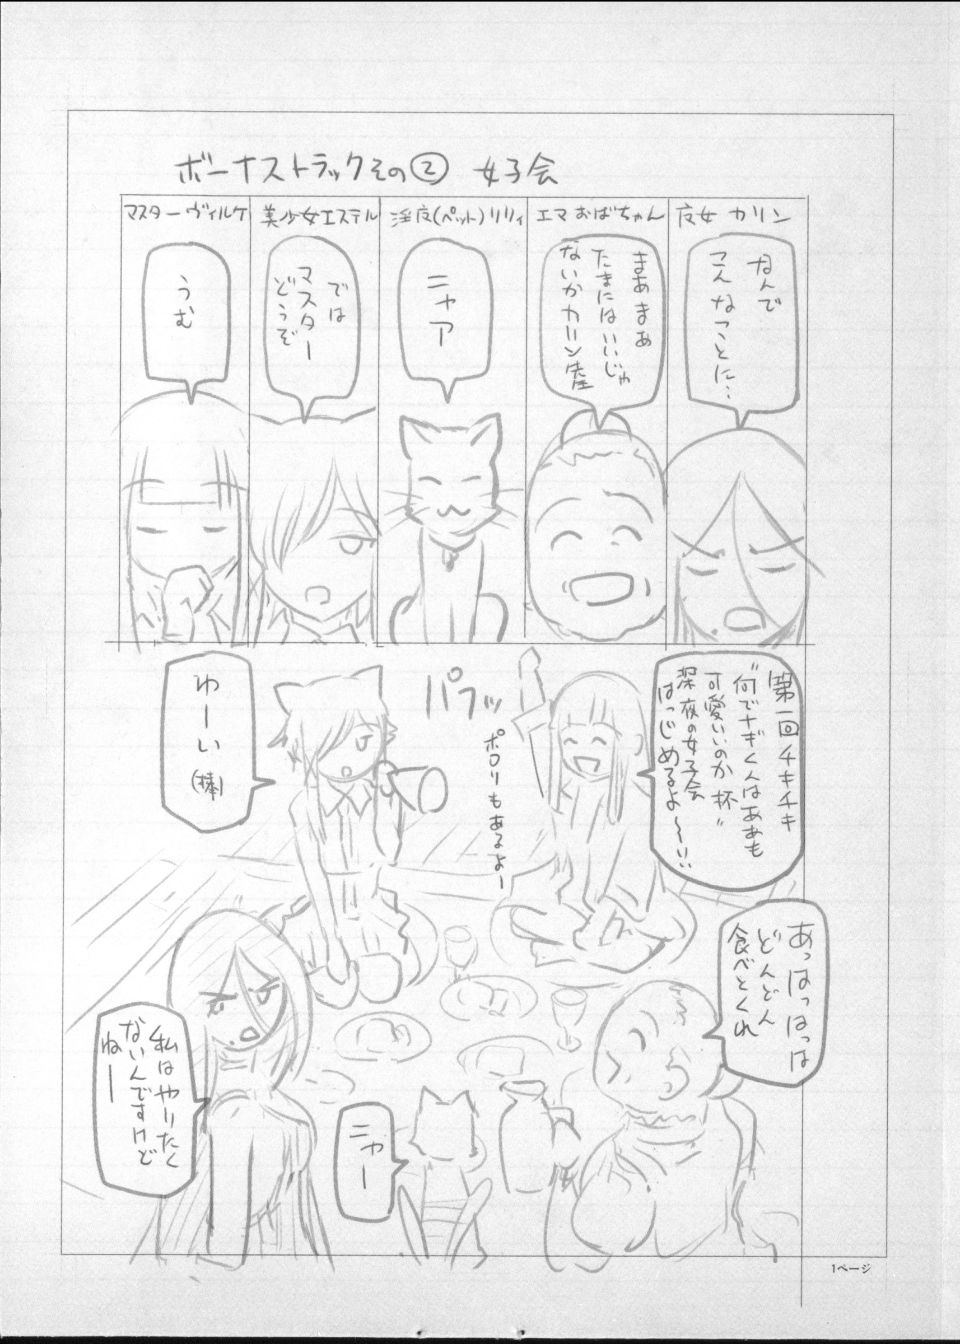 ボーナストラックその② 女子会
夜女 カリン
エマおばちゃん
淫夜(ペット)リリィ
美少女エステル
マスターヴィルケ
なんで
こんなことに…
まあまあ
たまにはいいじゃ
ないかカリン
ニャア
では
マスター
どうぞ
うむ
第一回チキチキ
"何でナギくんはああも
可愛いいのか 杯"
深夜の女子会
はっじめるよ〜!!
パフッ
ポロリもあるよー
わーい
(棒)
あっはっはっは
どんどん
食べとくれ
私はやりたく
ないんですけど
ねー
ニャー
1ページ